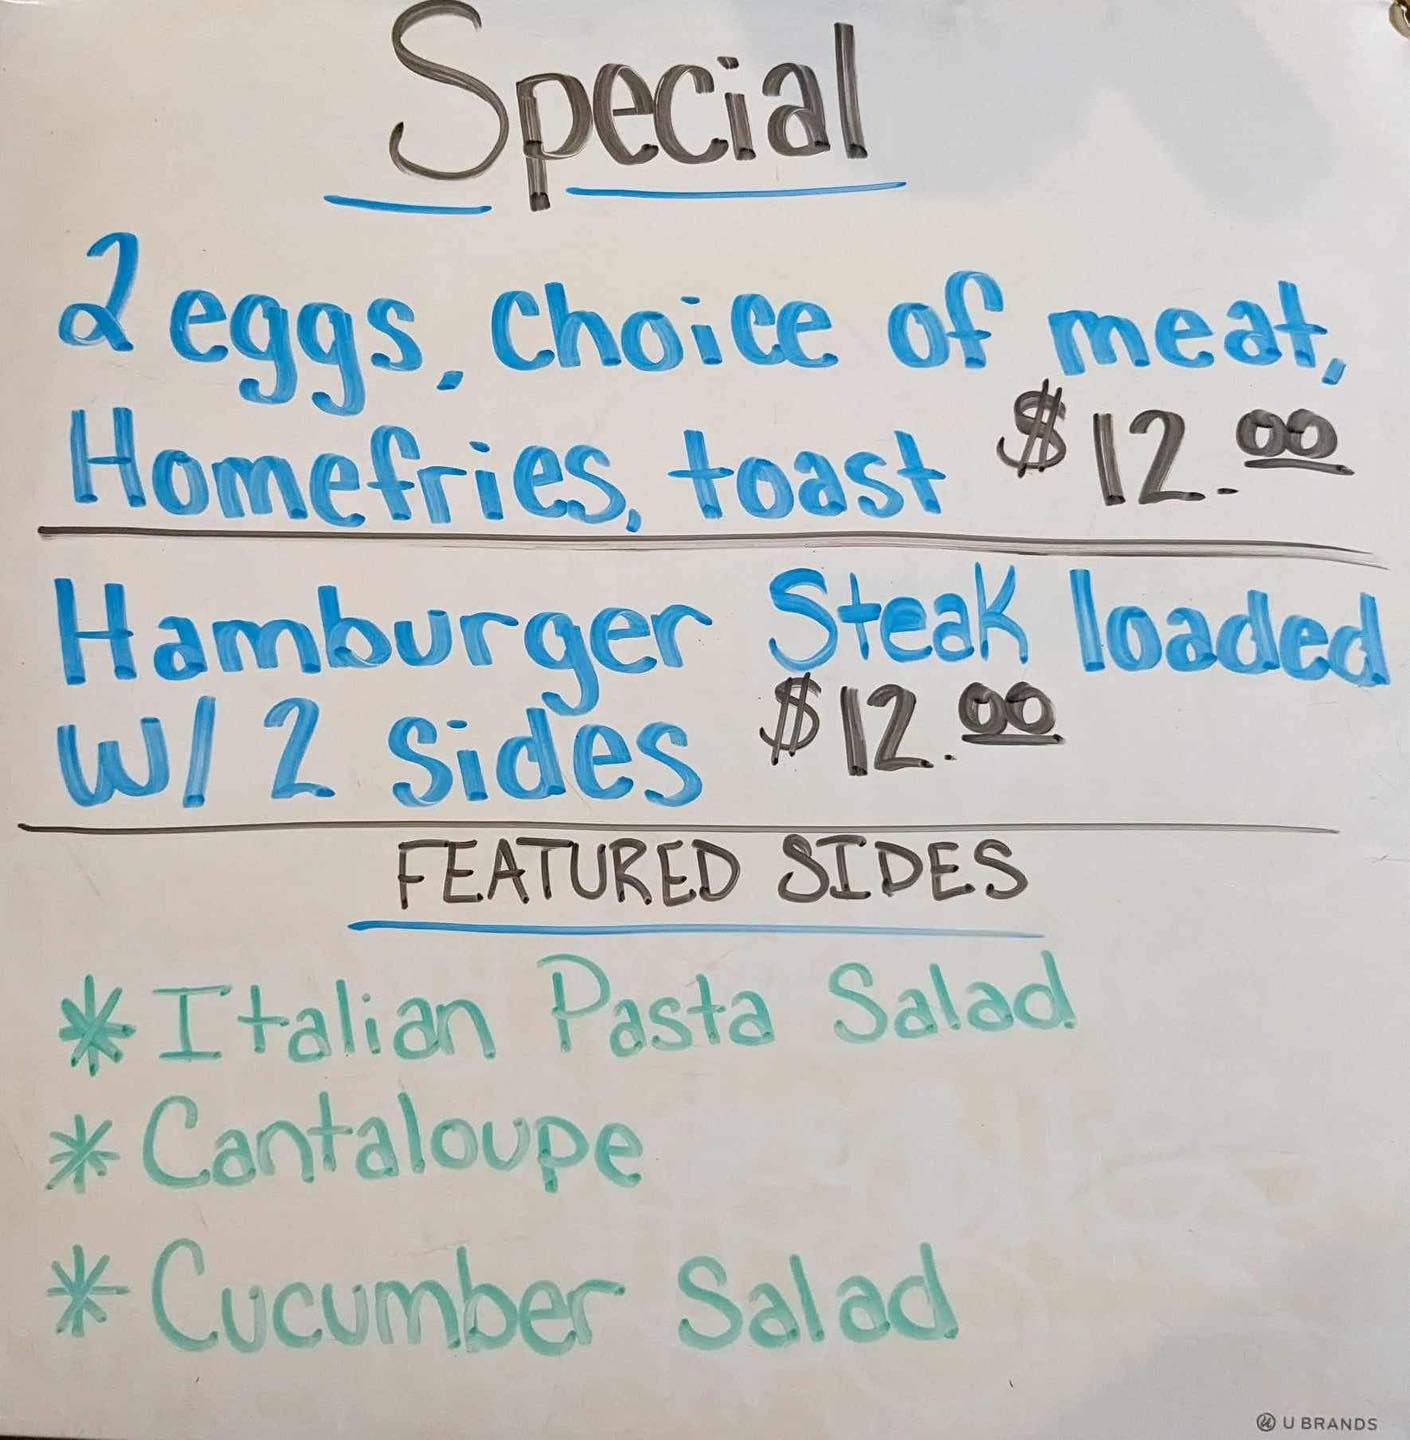 Special
2 eggs, choice of meat,
Homefries, toast $12.00
Hamburger Steak loaded
w/ 2 sides $12.00
FEATURED SIDES
* Italian Pasta Salad
* Cantaloupe
* Cucumber Salad
U BRANDS